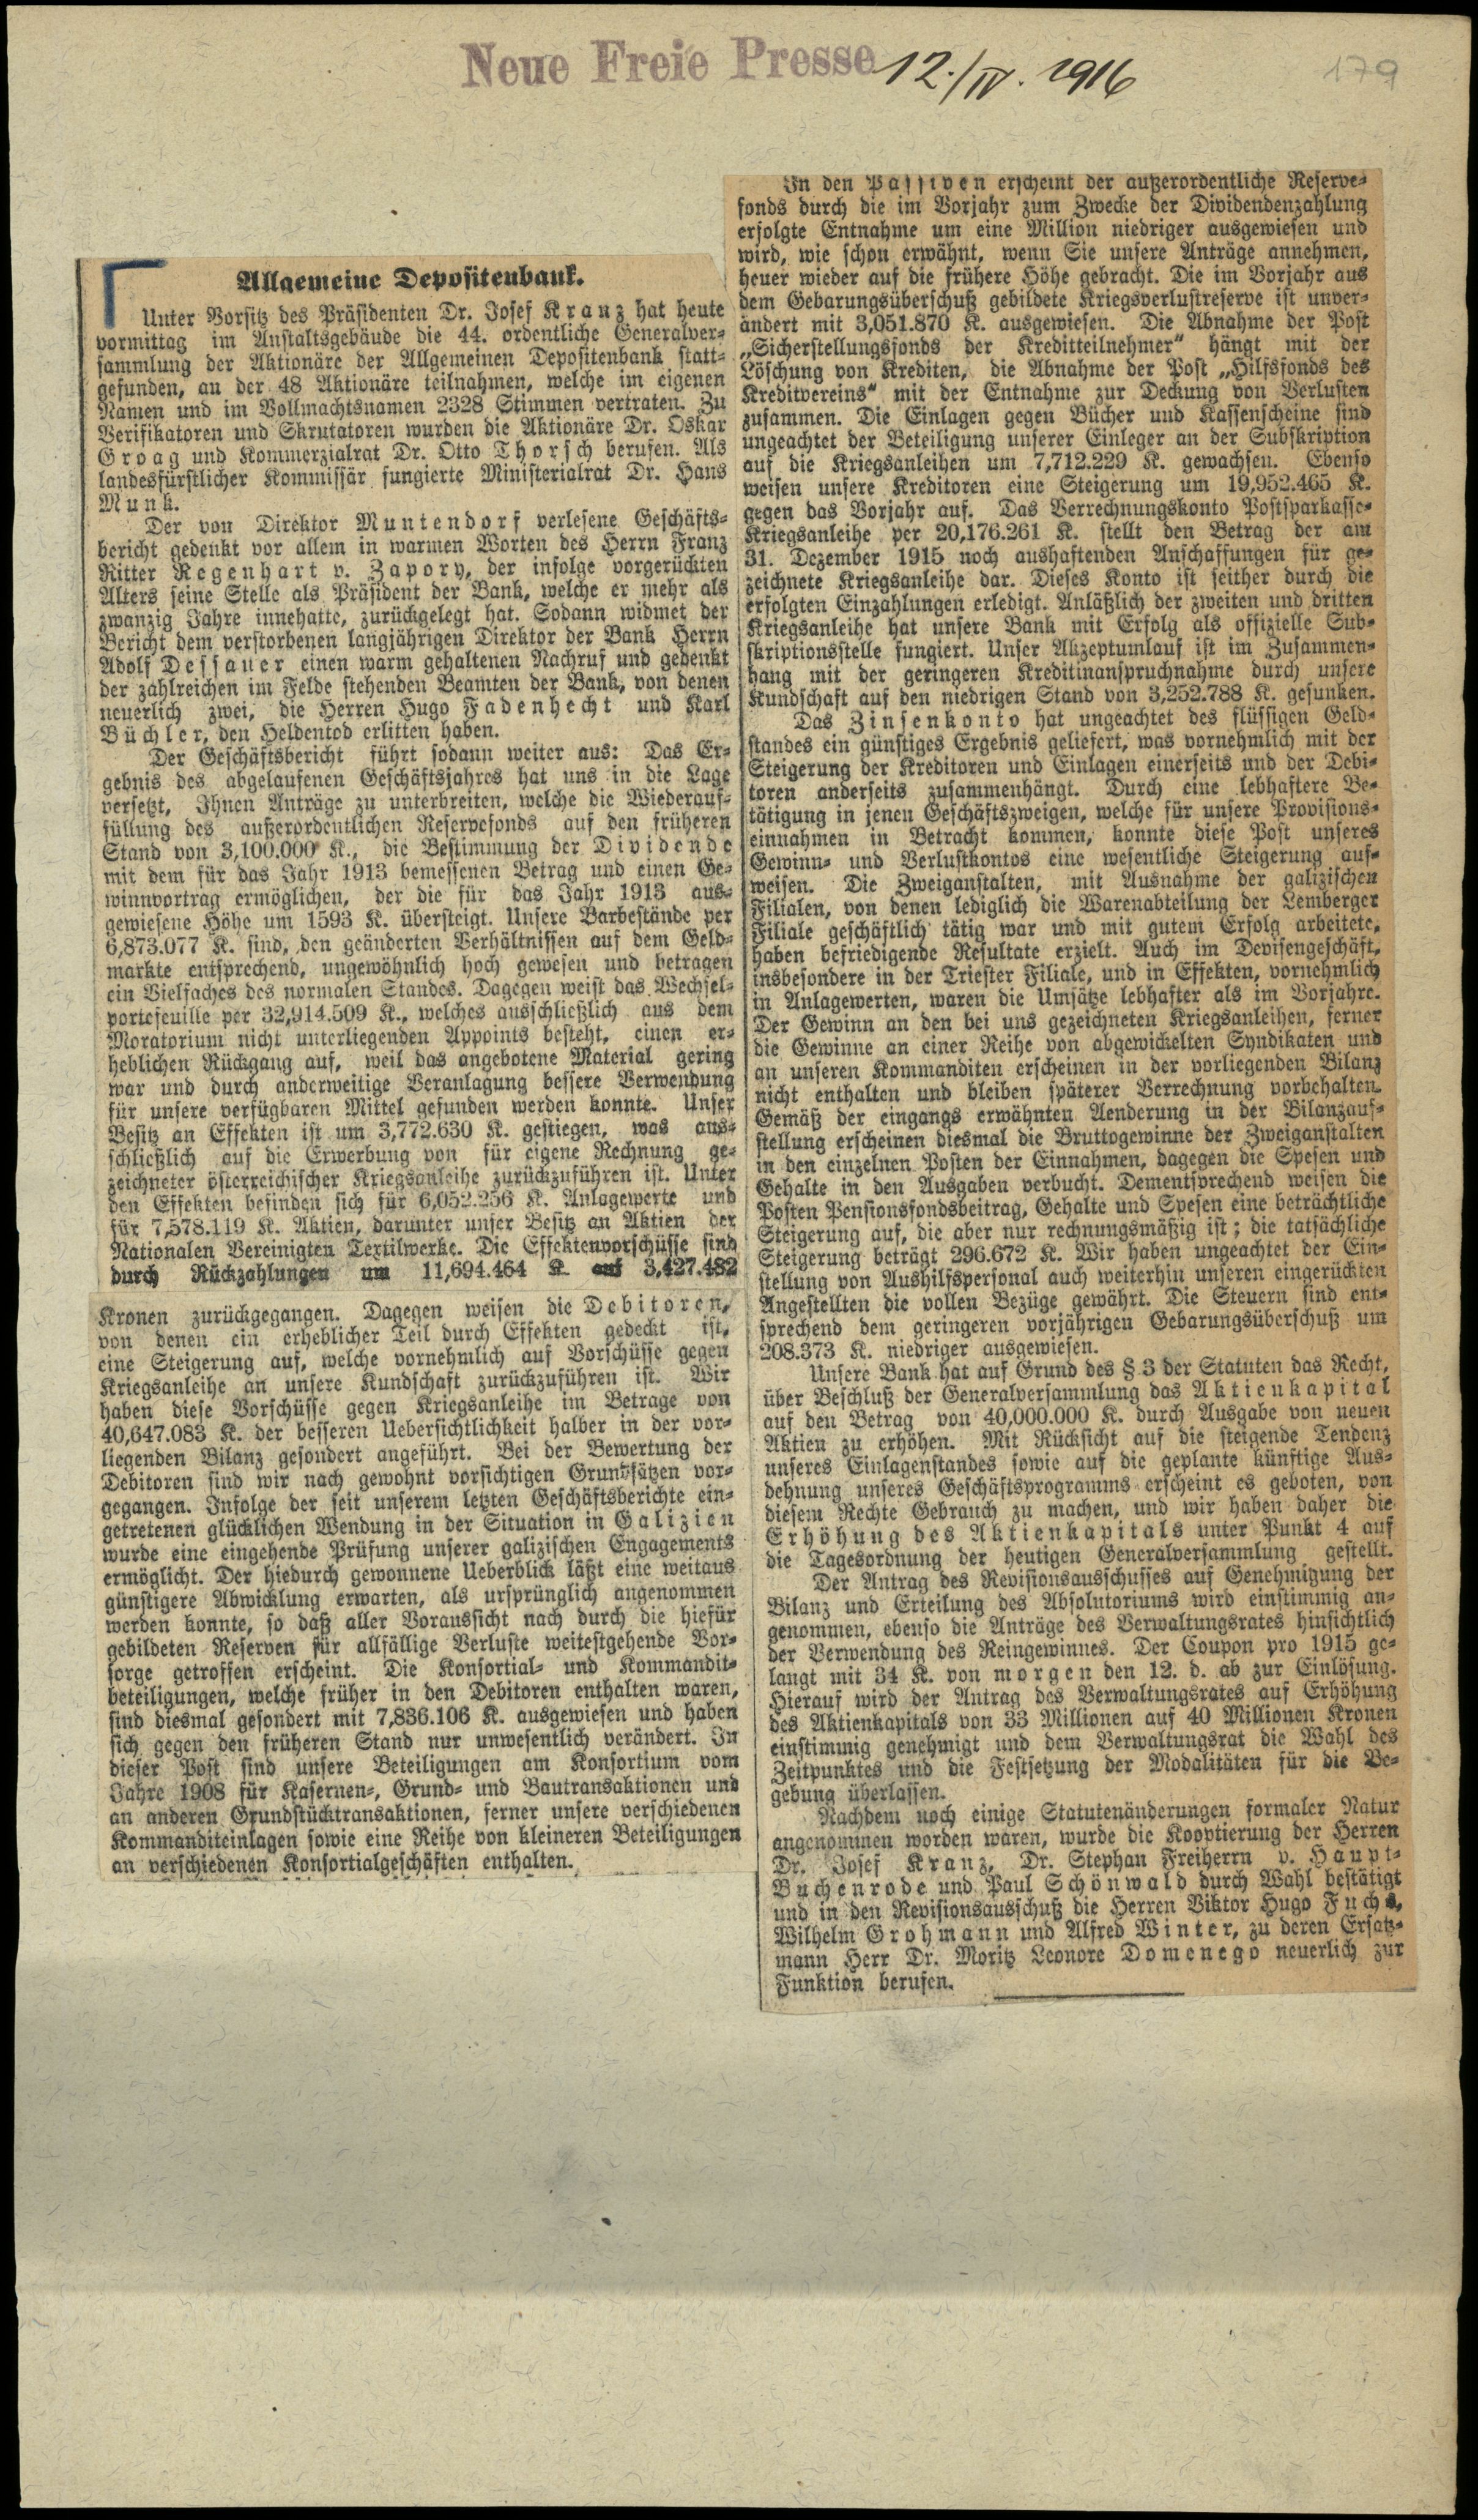 Neue Freie Presse 12./IV. 1916
179
Allgemeine Depositenbank.
Unter Vorsitz des Präsidenten Dr. Josef Kranz hat heute
vormittag im Anstaltsgebäude die 44. ordentliche Generalver-
sammlung der Aktionäre der Allgemeinen Depositenbank statt-
gefunden, an der 48 Aktionäre teilnahmen, welche im eigenen
Namen und im Vollmachtsnamen 2328 Stimmen vertraten. Zu
Verifikatoren und Skrutatoren wurden die Aktionäre Dr. Oskar
Groag und Kommerzialrat Dr. Otto Thorsch berufen. Als
landesfürstlicher Kommissär fungierte Ministerialrat Dr. Hans
Munk.
Der von Direktor Muntendorf verlesene Geschäfts-
bericht gedenkt vor allem in warmen Worten des Herrn Franz
Ritter Regenhart v. Zapory, der infolge vorgerückten
Alters seine Stelle als Präsident der Bank, welche er mehr als
zwanzig Jahre innehatte, zurückgelegt hat. Sodann widmet der
Bericht dem verstorbenen langjährigen Direktor der Bank Herrn
Adolf Dessauer einen warm gehaltenen Nachruf und gedenkt
der zahlreichen im Felde stehenden Beamten der Bank, von denen
neuerlich zwei, die Herren Hugo Fadenhecht und Karl
Büchler, den Heldentod erlitten haben.
Der Geschäftsbericht führt sodann weiter aus: Das Er-
gebnis des abgelaufenen Geschäftsjahres hat uns in die Lage
versetzt, Ihnen Anträge zu unterbreiten, welche die Wiederauf-
füllung des außerordentlichen Reservefonds auf den früheren
Stand von 3,100.000 K., die Bestimmung der Dividende
mit dem für das Jahr 1913 bemessenen Betrag und einen Ge-
winnvortrag ermöglichen, der die für das Jahr 1913 aus-
gewiesene Höhe um 1593 K. übersteigt. Unsere Barbestände per
6,873.077 K. sind, den geänderten Verhältnissen auf dem Geld-
markte entsprechend, ungewöhnlich hoch gewesen und betragen
ein Vielfaches des normalen Standes. Dagegen weist das Wechsel-
portefeuille per 32,914.509 K., welches ausschließlich aus dem
Moratorium nicht unterliegenden Appoints besteht, einen er-
heblichen Rückgang auf, weil das angebotene Material gering
war und durch anderweitige Veranlagung bessere Verwendung
für unsere verfügbaren Mittel gefunden werden konnte. Unser
Besitz an Effekten ist um 3,772.630 K. gestiegen, was aus-
schließlich auf die Erwerbung von für eigene Rechnung ge-
zeichneter österreichischer Kriegsanleihe zurückzuführen ist. Unter
den Effekten befinden sich für 6,052.256 K. Anlagewerte und
für 7,578.119 K. Aktien, darunter unser Besitz an Aktien der
Nationalen Vereinigten Textilwerke. Die Effektenvorschüsse sind
durch Rückzahlungen um 11,694.464 K. auf 3,427.482
Kronen zurückgegangen. Dagegen weisen die Debitoren,
von denen ein erheblicher Teil durch Effekten gedeckt ist,
eine Steigerung auf, welche vornehmlich auf Vorschüsse gegen
Kriegsanleihe an unsere Kundschaft zurückzuführen ist. Wir
haben diese Vorschüsse gegen Kriegsanleihe im Betrage von
40,647.083 K. der besseren Uebersichtlichkeit halber in der vor-
liegenden Bilanz gesondert angeführt. Bei der Bewertung der
Debitoren sind wir nach gewohnt vorsichtigen Grundsätzen vor-
gegangen. Infolge der seit unserem letzten Geschäftsberichte ein-
getretenen glücklichen Wendung in der Situation in Galizien
wurde eine eingehende Prüfung unserer galizischen Engagements
ermöglicht. Der hiedurch gewonnene Ueberblick läßt eine weitaus
günstigere Abwicklung erwarten, als ursprünglich angenommen
werden konnte, so daß aller Voraussicht nach durch die hiefür
gebildeten Reserven für allfällige Verluste weitestgehende Vor-
sorge getroffen erscheint. Die Konsortial- und Kommandit-
beteiligungen, welche früher in den Debitoren enthalten waren,
sind diesmal gesondert mit 7,836.106 K. ausgewiesen und haben
sich gegen den früheren Stand nur unwesentlich verändert. In
dieser Post sind unsere Beteiligungen am Konsortium vom
Jahre 1908 für Kasernen-, Grund- und Bautransaktionen und
an anderen Grundstücktransaktionen, ferner unsere verschiedenen
Kommanditeinlagen sowie eine Reihe von kleineren Beteiligungen
an verschiedenen Konsortialgeschäften enthalten.
In den Passiven erscheint der außerordentliche Reserve-
fonds durch die im Vorjahr zum Zwecke der Dividendenzahlung
erfolgte Entnahme um eine Million niedriger ausgewiesen und
wird, wie schon erwähnt, wenn Sie unsere Anträge annehmen,
heuer wieder auf die frühere Höhe gebracht. Die im Vorjahr aus
dem Gebarungsüberschuß gebildete Kriegsverlustreserve ist unver-
ändert mit 3,051.870 K. ausgewiesen. Die Abnahme der Post
„Sicherstellungsfonds der Kreditteilnehmer“ hängt mit der
Löschung von Krediten, die Abnahme der Post „Hilfsfonds des
Kreditvereins“ mit der Entnahme zur Deckung von Verlusten
zusammen. Die Einlagen gegen Bücher und Kassenscheine sind
ungeachtet der Beteiligung unserer Einleger an der Subskription
auf die Kriegsanleihen um 7,712.229 K. gewachsen. Ebenso
weisen unsere Kreditoren eine Steigerung um 19,952.465 K.
gegen das Vorjahr auf. Das Verrechnungskonto Postsparkasse-
Kriegsanleihe per 20,176.261 K. stellt den Betrag der am
31. Dezember 1915 noch aushaftenden Anschaffungen für ge-
zeichnete Kriegsanleihe dar. Dieses Konto ist seither durch die
erfolgten Einzahlungen erledigt. Anläßlich der zweiten und dritten
Kriegsanleihe hat unsere Bank mit Erfolg als offizielle Sub-
skriptionsstelle fungiert. Unser Akzeptumlauf ist im Zusammen-
hang mit der geringeren Kreditinanspruchnahme durch unsere
Kundschaft auf den niedrigen Stand von 3,252.788 K. gesunken.
Das Zinsenkonto hat ungeachtet des flüssigen Geld-
standes ein günstiges Ergebnis geliefert, was vornehmlich mit der
Steigerung der Kreditoren und Einlagen einerseits und der Debi-
toren anderseits zusammenhängt. Durch eine lebhaftere Be-
tätigung in jenen Geschäftszweigen, welche für unsere Provisions-
einnahmen in Betracht kommen, konnte diese Post unseres
Gewinn- und Verlustkontos eine wesentliche Steigerung auf-
weisen. Die Zweiganstalten, mit Ausnahme der galizischen
Filialen, von denen lediglich die Warenabteilung der Lemberger
Filiale geschäftlich tätig war und mit gutem Erfolg arbeitete,
haben befriedigende Resultate erzielt. Auch im Devisengeschäft,
insbesondere in der Triester Filiale, und in Effekten, vornehmlich
in Anlagewerten, waren die Umsätze lebhafter als im Vorjahre.
Der Gewinn an den bei uns gezeichneten Kriegsanleihen, ferner
die Gewinne an einer Reihe von abgewickelten Syndikaten und
an unseren Kommanditen erscheinen in der vorliegenden Bilanz
nicht enthalten und bleiben späterer Verrechnung vorbehalten.
Gemäß der eingangs erwähnten Aenderung in der Bilanzauf-
stellung erscheinen diesmal die Bruttogewinne der Zweiganstalten
in den einzelnen Posten der Einnahmen, dagegen die Spesen und
Gehalte in den Ausgaben verbucht. Dementsprechend weisen die
Posten Pensionsfondsbeitrag, Gehalte und Spesen eine beträchtliche
Steigerung auf, die aber nur rechnungsmäßig ist; die tatsächliche
Steigerung beträgt 296.672 K. Wir haben ungeachtet der Ein-
stellung von Aushilfspersonal auch weiterhin unseren eingerückten
Angestellten die vollen Bezüge gewährt. Die Steuern sind ent-
sprechend dem geringeren vorjährigen Gebarungsüberschuß um
208.373 K. niedriger ausgewiesen.
Unsere Bank hat auf Grund des § 3 der Statuten das Recht,
über Beschluß der Generalversammlung das Aktienkapital
auf den Betrag von 40,000.000 K. durch Ausgabe von neuen
Aktien zu erhöhen. Mit Rücksicht auf die steigende Tendenz
unseres Einlagenstandes sowie auf die geplante künftige Aus-
dehnung unseres Geschäftsprogramms erscheint es geboten, von
diesem Rechte Gebrauch zu machen, und wir haben daher die
Erhöhung des Aktienkapitals unter Punkt 4 auf
die Tagesordnung der heutigen Generalversammlung gestellt.
Der Antrag des Revisionsausschusses auf Genehmigung der
Bilanz und Erteilung des Absolutoriums wird einstimmig an-
genommen, ebenso die Anträge des Verwaltungsrates hinsichtlich
der Verwendung des Reingewinnes. Der Coupon pro 1915 ge-
langt mit 34 K. von morgen den 12. d. ab zur Einlösung.
Hierauf wird der Antrag des Verwaltungsrates auf Erhöhung
des Aktienkapitals von 33 Millionen auf 40 Millionen Kronen
einstimmig genehmigt und dem Verwaltungsrat die Wahl des
Zeitpunktes und die Festsetzung der Modalitäten für die Be-
gebung überlassen.
Nachdem noch einige Statutenänderungen formaler Natur
angenommen worden waren, wurde die Kooptierung der Herren
Dr. Josef Kranz, Dr. Stephan Freiherrn v. Haupt-
Buchenrode und Paul Schönwald durch Wahl bestätigt
und in den Revisionsausschuß die Herren Viktor Hugo Fuchs,
Wilhelm Grohmann und Alfred Winter, zu deren Ersatz-
mann Herr Dr. Moritz Leonore Domenego neuerlich zur
Funktion berufen.